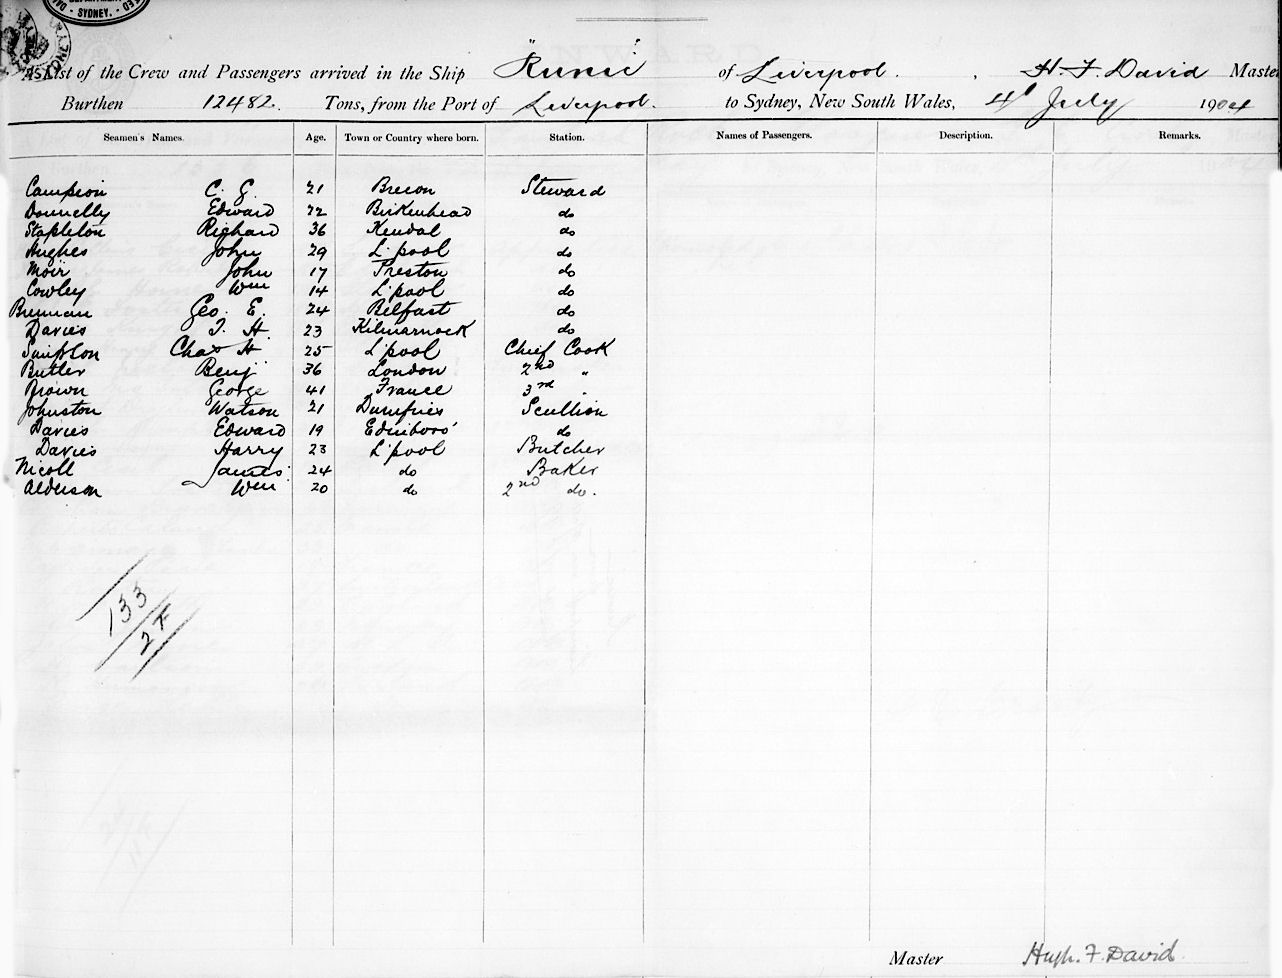 SYDNEY.
List of the Crew and Passengers arrived in the Ship "Runic" of Liverpool. , H. F. David Master
Burthen 12482. Tons, from the Port of Liverpool. to Sydney, New South Wales, 4th July 1904
Seamen's Names. Age. Town or Country where born. Station. Names of Passengers. Description. Remarks.
Campion C. G. 21 Brecon Steward
Donnelly Edward 22 Birkenhead do
Stapleton Richard 36 Kendal do
Hughes John 29 L'pool do
Moir John 17 Preston do
Cowley Wm 14 L'pool do
Brennan Geo. E. 24 Belfast do
Davies T. H. 23 Kilmarnock do
Simpson Chas H 25 L'pool Chief Cook
Butler Benj 36 London 2nd "
Brown George 41 France 3rd "
Johnston Watson 21 Dumfries Scullion
Davies Edward 19 Edinboro' do
Davies Harry 23 L'pool Butcher
Nicoll James 24 do Baker
Alderson Wm 20 do 2nd do.
133
27
Master Hugh. F. David